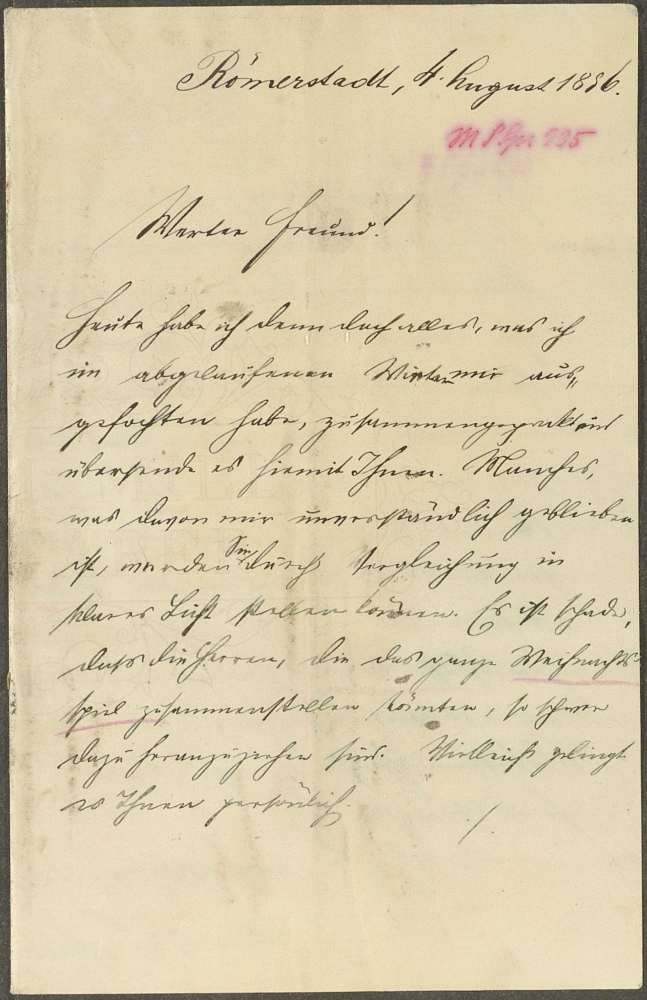 Römerstadt, 4. August 1896.
Werter Freund!
Heute habe ich denn doch alles, was ich
im abgelaufenen Winter mir aus„
gefochten habe, zusammengepackt und
übersende es hiemit Ihnen. Manches,
was davon mir unverständlich geblieben
ist, werden Sie durch Vergleichung in
klares Licht stellen können. Es ist schade,
dass die Herren, die das ganze Weihnachts-
spiel zusammenstellen könnten, so schwer
dazu heranzuziehen sind. Vielleicht gelingt
es Ihnen persönlich.
./.